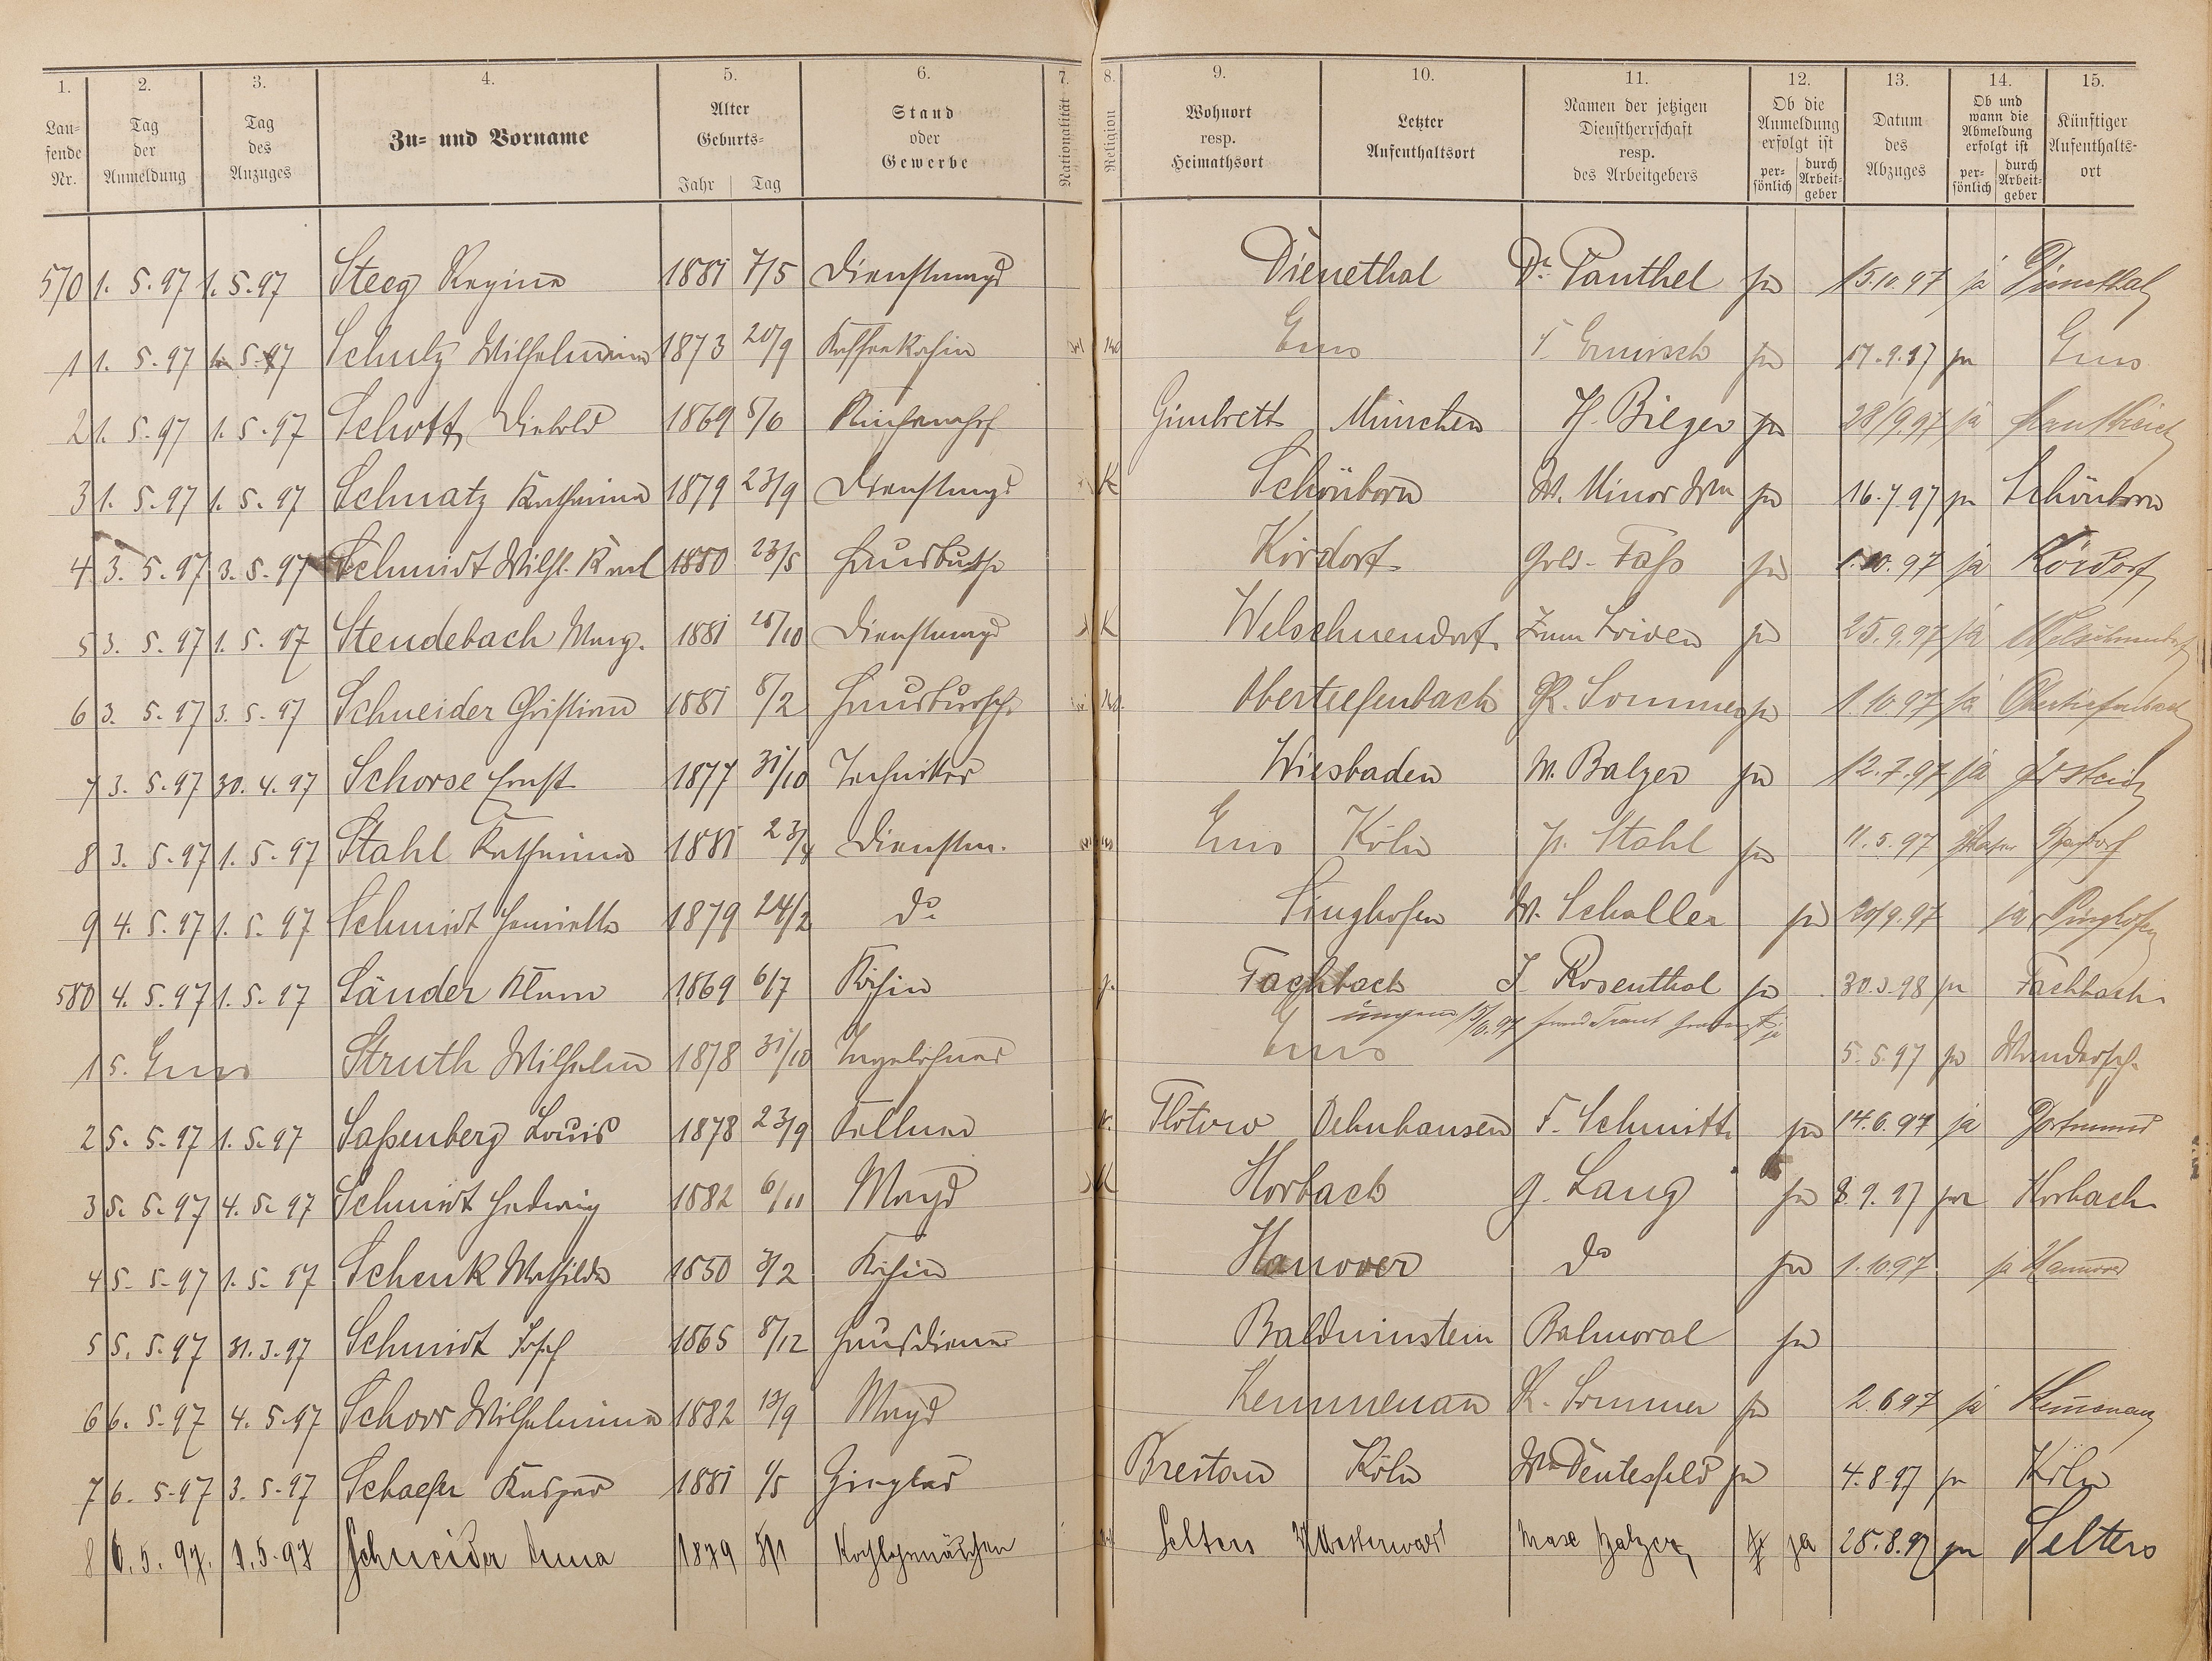 1. 2. 3. 4. 5. 6. 7. 8. 9. 10. 11. 12. 13. 14. 15.
Lau-
fende
Nr.
Tag
der
Anmeldung
Tag
des
Anzuges
Zu- und Vorname
Alter
Geburts-
Jahr Tag
Stand
oder
Gewerbe
Nationalität
Religion
Wohnort
resp.
Heimathsort
Letzter
Aufenthaltsort
Namen der jetzigen
Dienstherrschaft
resp.
des Arbeitgebers
Ob die
Anmeldung
erfolgt ist
per-
sönlich
durch
Arbeit-
geber
Datum
des
Abzuges
Ob und
wann die
Abmeldung
erfolgt ist
per-
sönlich
durch
Arbeit-
geber
Künftiger
Aufenthalts-
ort
570 1. 5. 97 1. 5. 97 Steeg Regina 1881 7/5 Dienstmagd Dienethal Dr. Panthel ja 15.10.97 ja Dienethal
1 1. 5. 97 1. 5. 97 Schulz Wilhelmina 1873 20/9 Kaffeeköchin Ems ja 17.9.97 ja Ems
2 1. 5. 97 1. 5. 97 Schott Diebold 1869 5/6 Küchenchef Gimbrett München H. Bieger ja 28/9.97 ja Frankreich
3 1. 5. 97 1. 5. 97 Schnatz Katharina 1879 23/9 Dienstmagd K Schönborn W. Minor Wwe ja 16.7.97 ja Schönborn
4 3. 5. 97 3. 5. 97 Schmidt Wilh. Karl 1880 23/5 Hausbursche Kördorf Gold. Faß ja 1.10.97 ja Kördorf
5 3. 5. 97 1. 5. 97 Stendebach Marg. 1881 /10 Dienstmagd K Welschneudorf Zum Löwen ja 25.9.97 ja Welschneudorf
6 3. 5. 97 3. 5. 97 Schneider Christian 1881 8/2 Hausbursche Obertiefenbach Sommer ja 1.10.97 ja Obertiefenbach
7 3. 5. 97 30. 4. 97 Schorse Ernst 1877 31/10 Techniker Wiesbaden M. Balzer ja 12.7.97 ja Idstein
8 3. 5. 97 1. 5. 97 Stahl Katharina 1881 23/4 Dienstm. Ems Köln Stahl ja 11.5.97
9 4. 5. 97 1. 5. 97 Schmidt Henriette 1879 24/2 do Singhofen W. Schaller ja 20/9.97 ja Singhofen
580 4. 5. 97 1. 5. 97 Länder 1869 6/7 Köchin Fachbach J. Rosenthal ja 30.3.98 ja Fachbach
1 5. Ems Struth Wilhelm 1878 31/10 Tagelöhner Ems 5.5.97 ja Wanderschf.
2 5. 5. 97 1. 5. 97 Saßenberg Louis 1878 23/9 Kellner Flotow Oehnhausen F. Schmitt ja 14.6.97 ja Dortmund
3 5. 5. 97 4. 5. 97 Schmidt Hedwig 1882 6/11 Magd K Horbach G. Lang ja 8.9.97 ja Horbach
4 5. 5. 97 1. 5. 97 Schenk Mathilde 1850 3/2 Köchin Hanover do ja 1.10.97 ja Hannover
5 5. 5. 97 31. 3. 97 Schmidt Josef 1865 8/12 Hausdiener Balduinstein Balmoral ja
6 6. 5. 97 4. 5. 97 Schorr Wilhelmina 1882 13/9 Magd Kemmenau K. Sommer ja 2.6.97 ja Kemenau
7 6. 5. 97 3. 5. 97 Schaefer Kaspar 1881 1/5 Ziegler Köln Wm Deutesfeld ja 4.8.97 ja Köln
8 6. 5. 97. 1. 5. 97 Schneider Anna 1879 5/1 Kochlehrmädchen Selters Westerwald Max Balzer ja 25.8.97 ja Selters